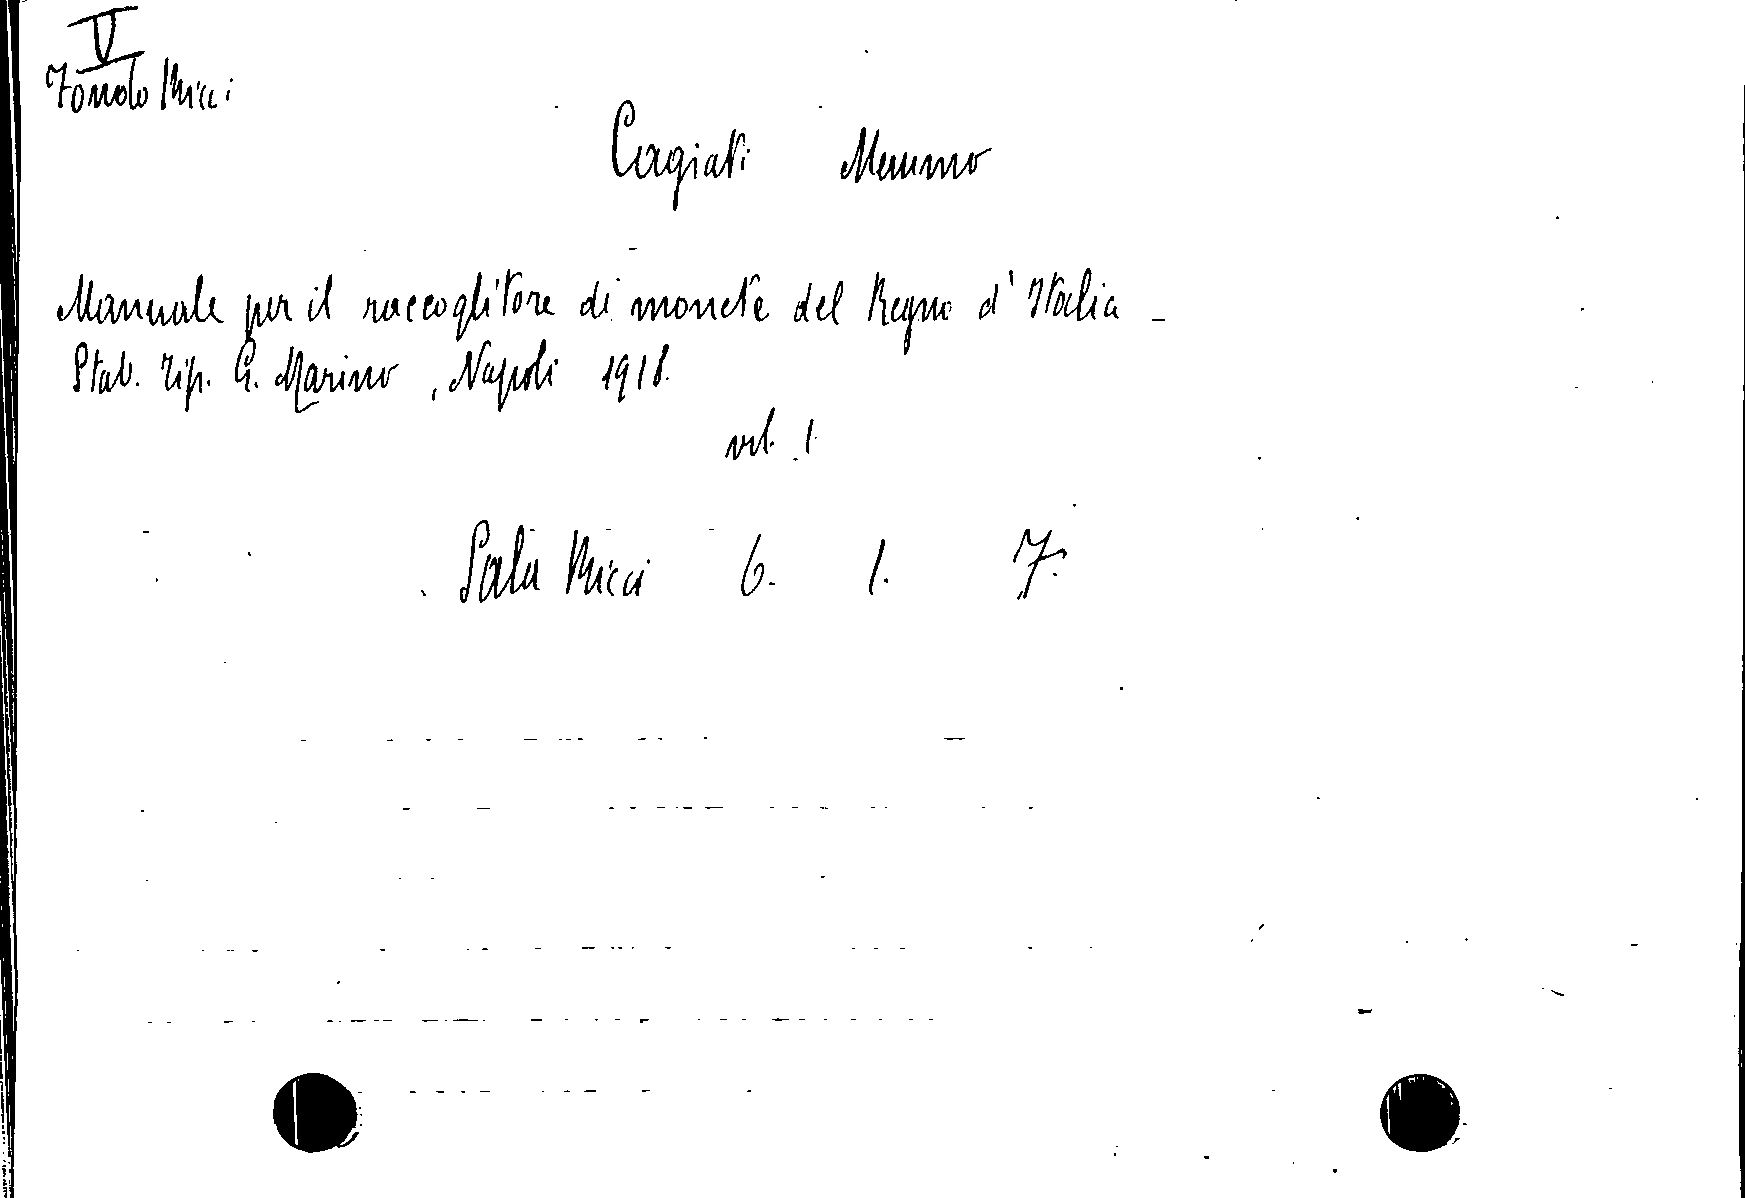 V
Fondo Ricci
Cagiati Memmo
Manuale per il raccoglitore di monete del Regno d'Italia -
Stab. Tip. G. Marino, Napoli 1918.
vol. 1.
Sala Ricci 6. 1. 7.